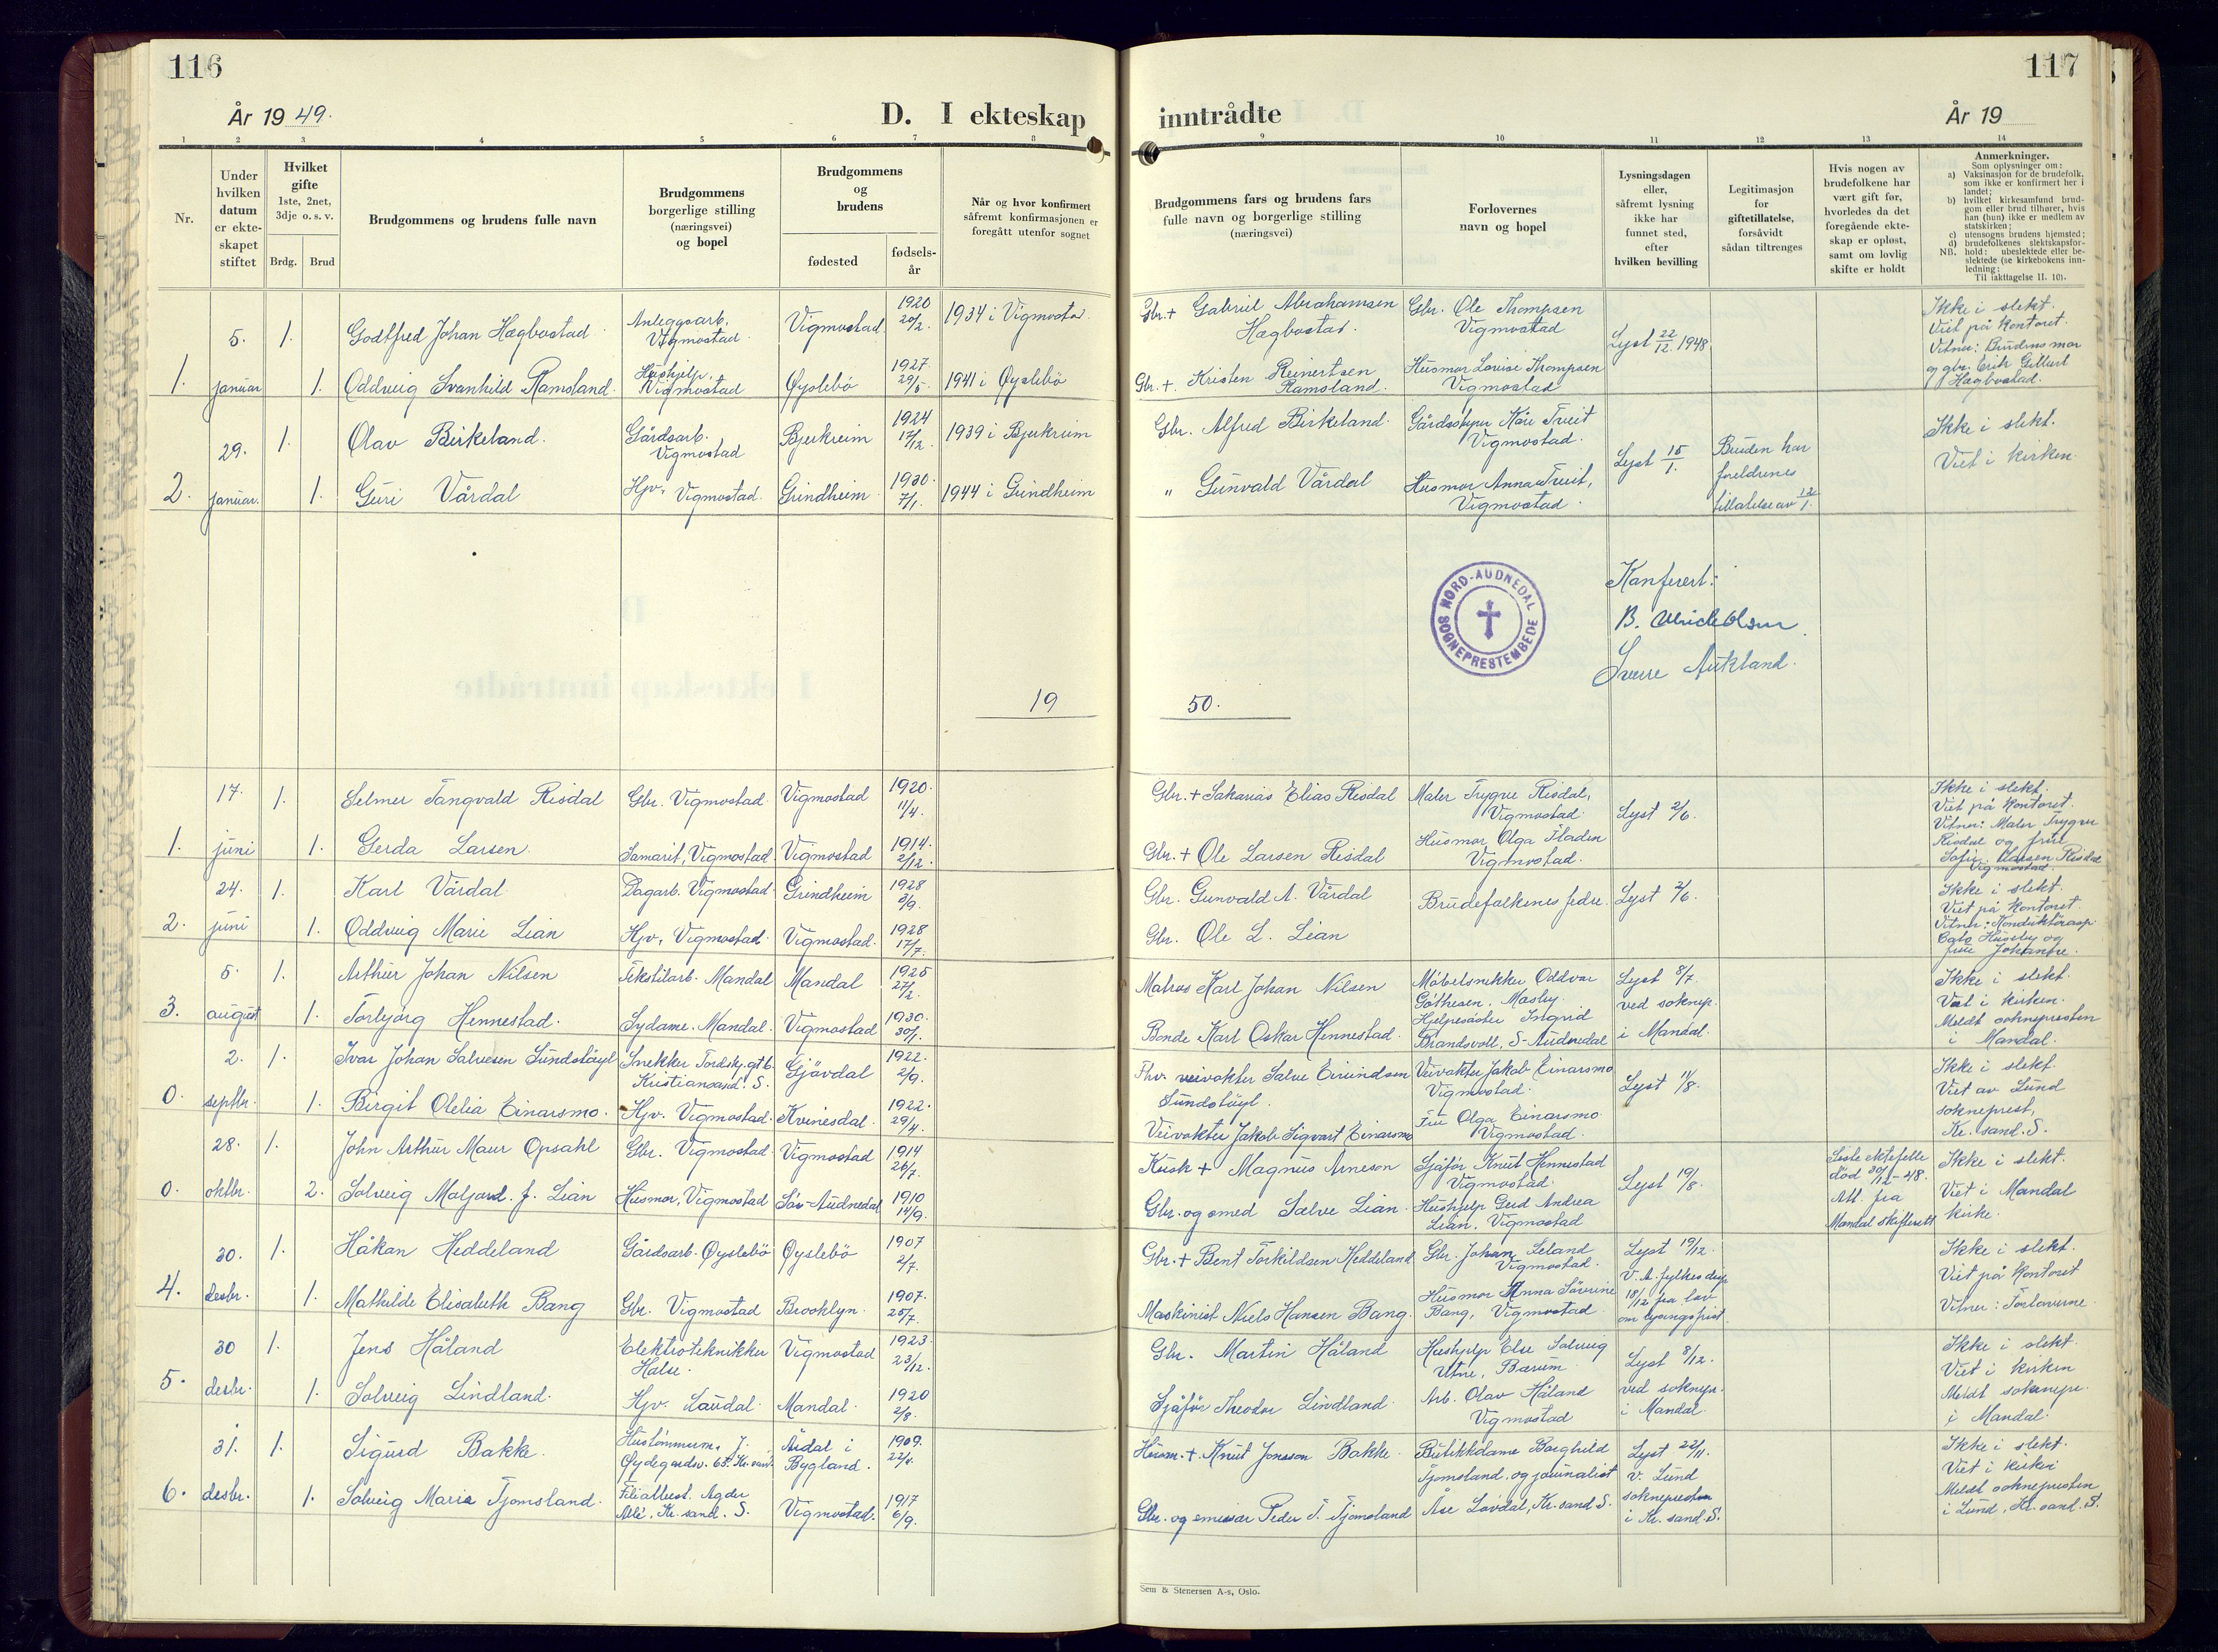 116
År 1949.
D. I ekteskap
inntrådte
117
År 19
1 2 3 4 5 6 7 8 9 10 11 12 13 14
Nr.
Under hvilken datum er ekte-skapet stiftet
Hvilket gifte 1ste, 2net, 3dje o. s. v.
Brdg. Brud
Brudgommens og brudens fulle navn
Brudgommens borgerlige stilling (næringsvei) og bopel
Brudgommens og brudens
fødested
fødsels-år
Når og hvor konfirmert såfremt konfirmasjonen er foregått utenfor sognet
Brudgommens fars og brudens fars fulle navn og borgerlige stilling (næringsvei)
Forlovernes navn og bopel
Lysningsdagen eller, såfremt lysning ikke har funnet sted, efter hvilken bevilling
Legitimasjon for giftetillatelse, forsåvidt sådan tiltrenges
Hvis nogen av brudefolkene har vært gift før, hvorledes da det foregående ekte-skap er opløst, samt om lovlig skifte er holdt
Anmerkninger.
Som oplysninger om:
a) Vaksinasjon for de brudefolk, som ikke er konfirmert her i landet;
b) hvilket kirkesamfund brud-gom eller brud tilhører, hvis han (hun) ikke er medlem av statskirken;
c) utensogns brudens hjemsted;
d) brudefolkenes slektskapsfor-hold: ubeslektede eller be-slektede (se kirkebokens inn-ledning;
NB. Til iakttagelse II. 10).
1. 5. januar
1. Godtfred Johan Hægbostad Anleggsarb. Vigmostad Vigmostad 1920 20/2. 1934 i Vigmostad.
1. Oddveig Svanhild Ramsland. Hushjelp, Vigmostad Øyslebö 1927. 29/5. 1941 i Øyslebö
Gbr. + Gabriel Abrahamsen Hægbostad.
Gbr. +. Kristen Reinertsen Ramsland.
Gbr. Ole Thompsen Vigmostad
Husmor Lovise Thompsen Vigmostad
Lyst 22/12. 1948
Ikke i slekt.
Viet på kontoret.
Vitner: Brudens mor
og gbr. Erik
Hægbostad.
2. 29. januar.
1. Olav Birkeland. Gårdsarb. Vigmostad Bjerkreim 1924 17/12. 1939 i Bjerkreim
1. Guri Vårdal Hjv. Vigmostad. Grindheim 1930. 7/1. 1944 i Grindheim
Gbr. Alfred Birkeland.
" Gunvald Vårdal
Gårdsstyrer Kåre Vigmostad.
Husmor Anna Vigmostad.
Lyst 15/1.
Bruden har foreldrenes tillatelse av 12/1.
Ikke i slekt.
Viet i kirken.
NORD-AUDNEDAL SOGNEPRESTEMBEDE
Konferert:
B. Ulrick Olsen
Sverre Aukland.
19 50.
1. 17. juni
1. Selmer Tangvald Risdal Gbr. Vigmostad Vigmostad 1920. 11/4.
1. Gerda Larsen. Samarit, Vigmostad Vigmostad 1914. 2/12.
Gbr. + Sakarias Elias Risdal
Gbr. + Ole Larsen Risdal
Maler Trygve Risdal, Vigmostad.
Husmor Olga Fladen Vigmostad.
Lyst 2/6.
Ikke i slekt.
Viet på kontoret.
Vitner: Maler Trygve
Risdal og frue
Sofie Larsen Risdal
Vigmostad.
2. 24. juni
1. Karl Vårdal Dagarb. Vigmostad. Grindheim 1928 3/9.
1. Oddveig Marie Lian Hjv. Vigmostad. Vigmostad. 1928 17/7.
Gbr. Gunvald A. Vårdal
Gbr. Ole L. Lian
Brudefolkenes fedre.
Lyst 2/6.
Ikke i slekt.
Viet på kontoret.
Vitner: Konduktörasp.
Husøby og
frue Johanne.
3. 5. august
1. Arthur Johan Nilsen Tekstilarb. Mandal Mandal 1925 27/2.
1. Torbjørg Hennestad. Sydame. Mandal. Vigmostad 1930. 30/1.
Matros Karl Johan Nilsen
Bonde Karl Oskar Hennestad.
Møbelsnekker Oddvar Göthesen, Mosby.
Hjelpesöster Ingrid Brandsvoll, S-Audnedal
Lyst 8/7. ved soknepr. i Mandal.
Ikke i slekt.
Viet i kirken.
Meldt soknepresten
i Mandal.
0. 2. septbr.
1. Ivar Johan Salvesen Sundstöyl Snekker Tordenskj.gt 6. Kristiansand. S. Gjövdal 1922. 2/9.
1. Birgit Olelia Einarsmo. Hjv. Vigmostad. Kvinesdal. 1922. 29/4.
Fhv. veivokter Salve Eivindsen Sundstöyl.
Veivokter Jakob Sigvart Einarsmo
Veivokter Jakob Einarsmo Vigmostad.
Fru Olga Einarsmo Vigmostad.
Lyst 11/8.
Ikke i slekt.
Viet av Lund
sokneprest,
Kr. sand. S.
0. 28. oktbr.
1. John Arthur Maur Opsahl Gbr. Vigmostad Vigmostad 1914 26/7.
2. Solveig Maljard. f. Lian Husmor, Vigmostad Sör-Audnedal 1910 14/9.
Kusk + Magnus Arneson
Gbr. og smed Salve Lian.
Sjåför Knut Hennestad Vigmostad.
Hushjelp Gerd Andrea Lian, Vigmostad
Lyst 19/8.
Siste ektefelle död 30/12-48. Att. fra Mandal skifterett
Ikke i slekt.
Viet i Mandal
kirke.
4. 30. desbr.
1. Håkan Heddeland Gårdsarb. Øyslebö Øyslebö 1907 2/7.
1. Mathilde Elisabeth Bang Gbr. Vigmostad Brooklyn. 1907. 25/7.
Gbr. + Bent Torkildsen Heddeland
Maskinist Niels Hansen Bang.
Gbr. Johan Leland Vigmostad.
Husmor Anna Sörine Bang, Vigmostad
Lyst 19/12. V. A. fylkes disp. 18/12 fra lov om lysingsfrist.
Ikke i slekt.
Viet på kontoret
Vitner: Forloverne.
5. 30 desbr.
1. Jens Håland Elektrotekniker Halse. Vigmostad 1923. 23/12.
1. Solveig Lindland. Hjv. Laudal. Mandal. 1920 2/8.
Gbr. Martin Håland
Sjåför Theodor Lindland.
Hushjelp Else Solveig Utne, Bærum.
Arb. Olav Håland Vigmostad
Lyst 8/12. ved soknepr. i Mandal.
Ikke i slekt.
Viet i kirken
Meldt soknepr.
i Mandal.
6. 31. desbr.
1. Sigurd Bakke. Hustömmerm. J. Øydegardsv. Kr. sand. Årdal i Bygland. 1909. 22/4.
1. Solveig Marie Tjomsland. Filialbest. Agder Allé, Kr. sand. S. Vigmostad. 1917 6/9.
Husm. +. Knut Jonsson Bakke.
Gbr. og emissær Peder T. Tjomsland
Butikkdame Borghild Tjomsland. og journalist Åse Lövdal, Kr. sand S.
Lyst 22/11. v. Lund soknepresten i Kr. sand. S.
Ikke i slekt.
Viet i kirken
Meldt soknepresten
i Lund, Kr. sand. S.
Sem & Stenersen A-s, Oslo.